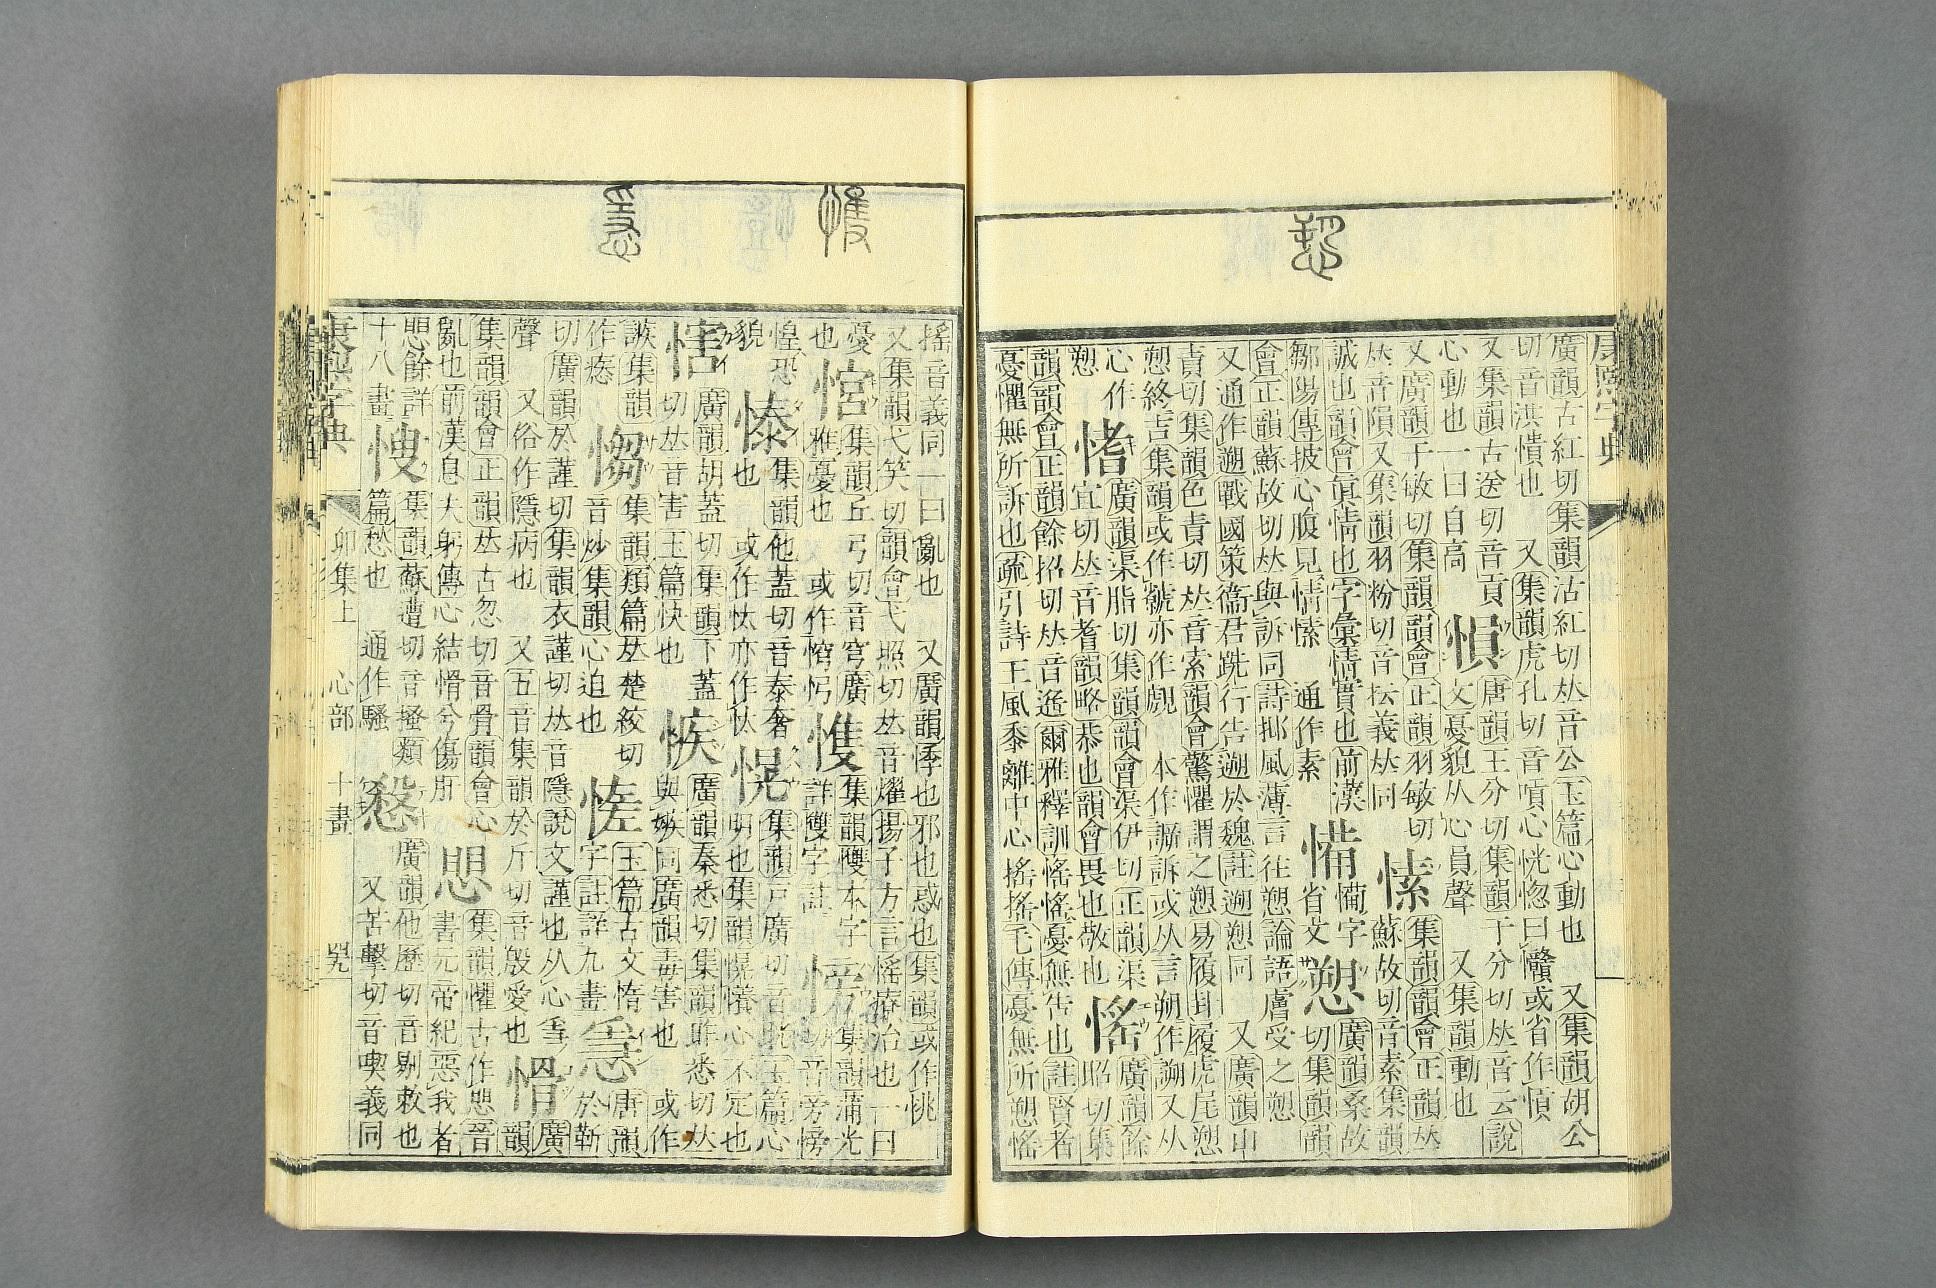 康熙字典
廣韻古紅切集韻沽紅切𠀤音公玉篇心動也 又集韻胡公
切音洪憒也 又集韻虎孔切音嗊心恍惚曰㦬或省作愩
又集韻古送切音貢 愪 唐韻王分切集韻于分切𠀤音云說
心動也 一曰自高 文憂貌从心員聲 又集韻動也
又廣韻于敏切集韻韻會正韻羽敏切 愫 集韻韻會正韻𠀤
𠀤音隕又集韻羽粉切音抎義𠀤同 蘇故切音素集韻
誠也韻會眞情也字彙情實也前漢 字 愬 廣韻桑故
鄒陽傳披心腹見情愫 通作素 省文 切集韻韻
會正韻蘇故切𠀤與訴同詩邶風薄言往愬論語膚受之愬
又通作遡戰國策衞君跣行告遡於魏註遡愬同 又廣韻山
責切集韻色責切𠀤音索韻會驚懼謂之愬易履卦履虎尾愬
愬終吉集韻或作虩亦作覤 本作訴或从言朔作又从
心作 愭 廣韻渠脂切集韻韻會渠伊切正韻渠 愮 廣韻餘
愬 宜切𠀤音耆韻略恭也韻會畏也敬也 昭切集
韻韻會正韻餘招切𠀤音遙爾雅釋訓愮愮憂無告也註賢者
憂懼無所訴也疏引詩王風黍離中心搖搖毛傳憂無所愬愮
搖音義同一曰亂也 又廣韻悸也邪也惑也集韻或作恌
又集韻弋笑切韻會弋照切𠀤音燿揚子方言愮療治也一曰
憂 集韻丘弓切音穹廣 愯 集韻㦜本字 集韻蒲光
也 雅憂也 或作 詳雙字註 切音旁
惶恐 集韻他蓋切音泰奢 愰 集韻戸廣切音晃玉篇心
貌 也 或作忕亦作 明也集韻愰懩心不定也
愘 廣韻胡蓋切集韻下蓋 㑵 廣韻秦悉切集韻昨悉切𠀤
切𠀤音害玉篇快也 與嫉同廣韻毒害也 或作
誺集韻 㥮 集韻類篇𠀤楚絞切 㥰 玉篇古文惰 㥯 唐韻
作 音炒集韻心迫也 字註詳九畫 於靳
切廣韻於謹切集韻衣謹切𠀤音隱說文謹也从心㥯 廣
聲 又俗作隱病也 又五音集韻於斤切音殷愛也 愲 韻
集韻韻會正韻𠀤古忽切音骨韻會心 愳 集韻懼古作愳音
亂也前漢息夫躬傳心結愲兮傷肝 書元帝紀惡我者
愳餘詳 㥰 集韻蘇遭切音搔類 廣韻他歷切音剔敕也
十八畫 篇愁也 通作騷 又苦擊切音喫義同
康熙字典 卯集上 心部 十畫